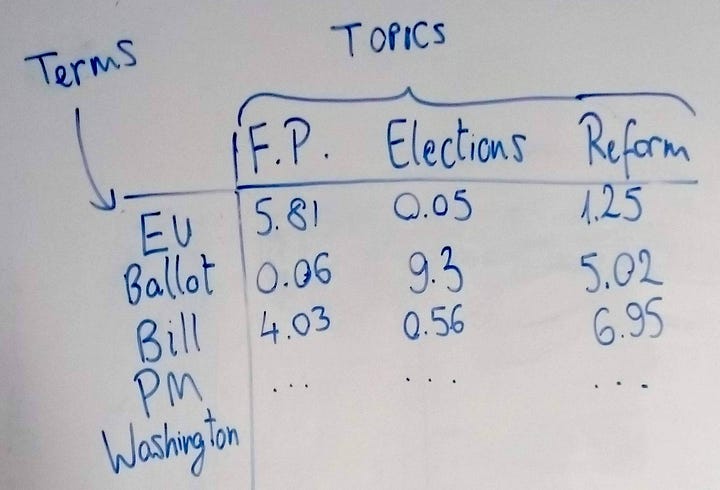 TOPICS
Terms
F.P. Elections Reform
EU 5.81 0.05 1.25
Ballot 0.06 9.3 5.02
Bill 4.03 0.56 6.95
PM ... ... ...
Washington